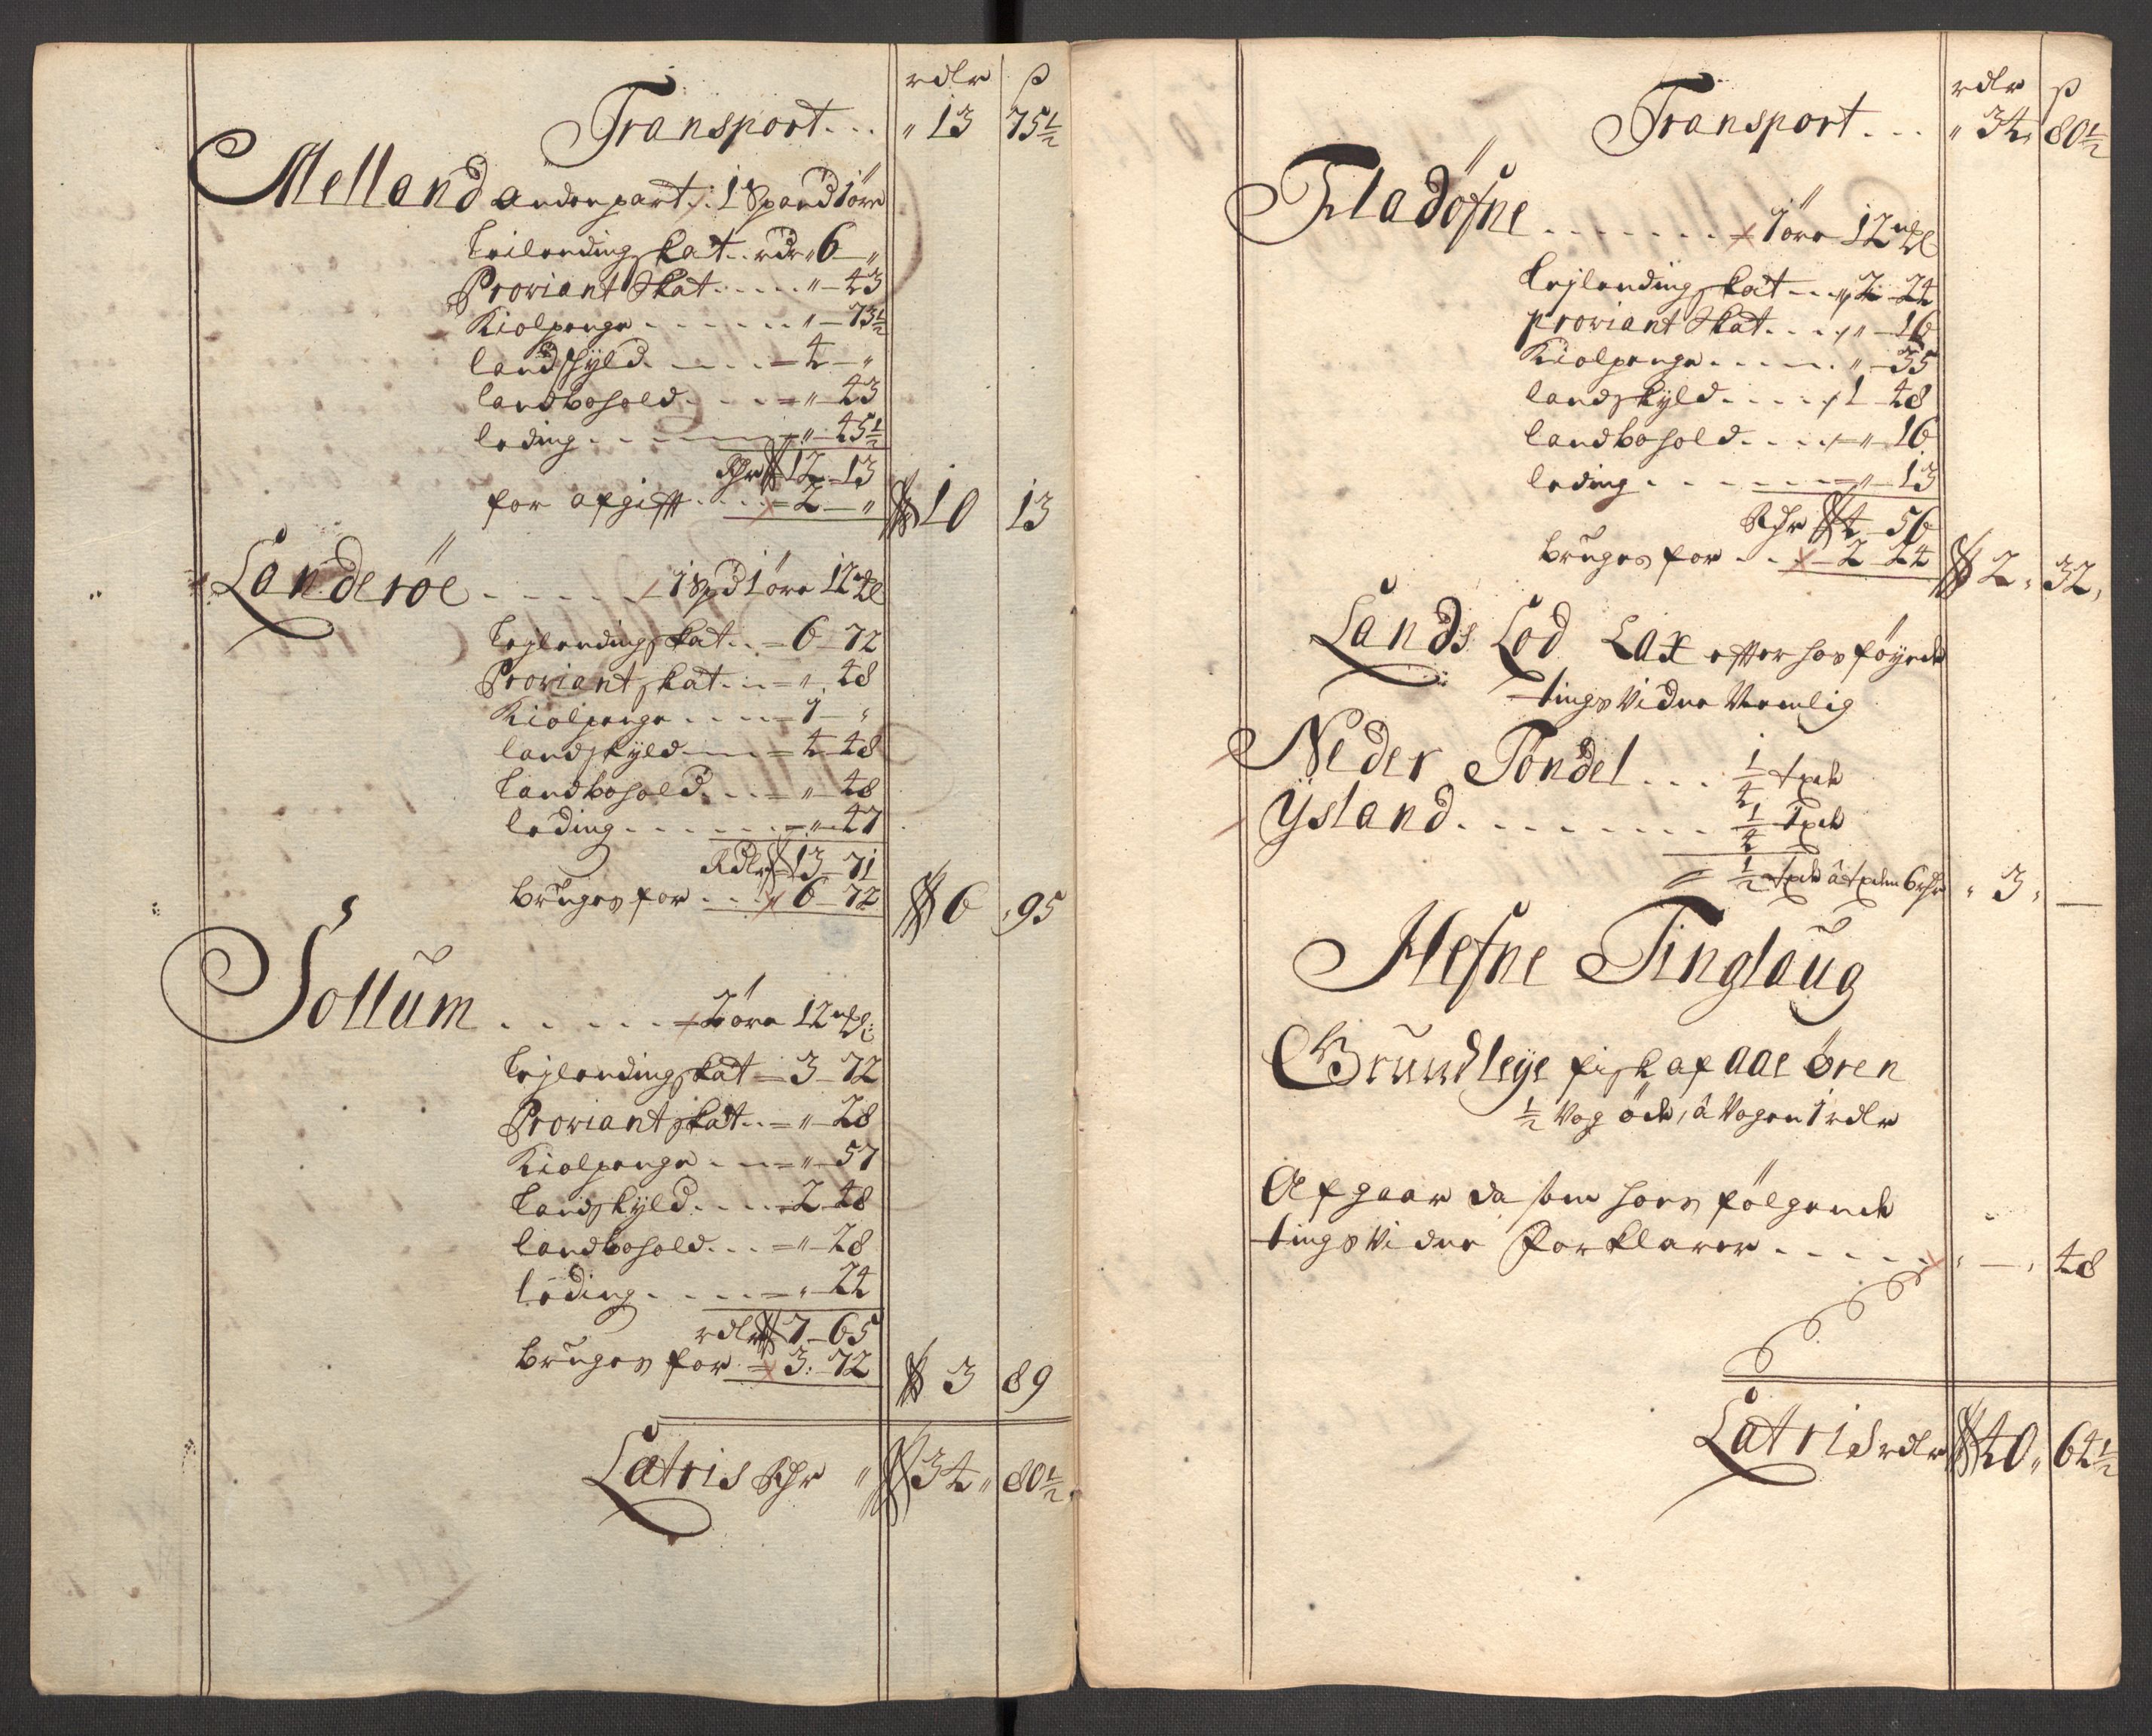 rdlr ß
Transport... " 13 75½
Melland anden part: 1 Spand 1 öre
Leilending skat.. rdr " 6 — "
Proviant Skat..... " — 43
Kiolpenge....... " — 73½
landskyld..... — 4 — "
landbohold.... = " — 43
leding....... " — 45½
Rdr 12 — 13
for afgifft.... — 2 — " 10 13
Landeröe ..... 1 Spd 1 öre 12 ml
Lejlending skat.. = 6 — 72
Proviant skat.... = " 48
Kiolpenge..... — 1 — "
landskyld.... = 4 — 48
Landbohold... = " — 48
leding....... = " — 47
Rdlr 13 — 71
bruges for... 6 — 72 6 95
Sollum ..... = 2 öre 12 ml:
Lejlending skat = 3 — 72
Proviant skat.. = " — 28
Kiolpenge.... = " — 57
Landskyld.... = 2 — 48
landbohold... = " — 28
leding..... = " — 24
rdlr 7 — 65
bruges for = 3: — 72 3 89
Latris Rdr " 34 " 80½
rdlr ß
Transport... " 34 " 80½
Fladöfne ....... 1 öre 12 ml
Lejlending skat.. 2 — 24
proviant Skat.... " — 16
Kiolpenge..... " — 35
landskyld..... 1 — 48
landbohold.... " — 16
leding...... = " — 13
Rdr 4 — 56
bruges for.. 2 — 24 2 " 32,
Lands Lod Lax effter hos föyede
tings Vidne Nemlig
Neder Töndel... ¼ tynde
Ysland......... ¼ Tynde
½ tynde â tynden 6 rdr " 3 " —
Hefne Tinglaug
Grundleye fisk af Aae ören
½ Vog öde, â Vogen 1 rdlr
Afgaar da som hos fölgende
tings Vidne Forklarer..... " — , 48
Latris rdlr 40 " 64½